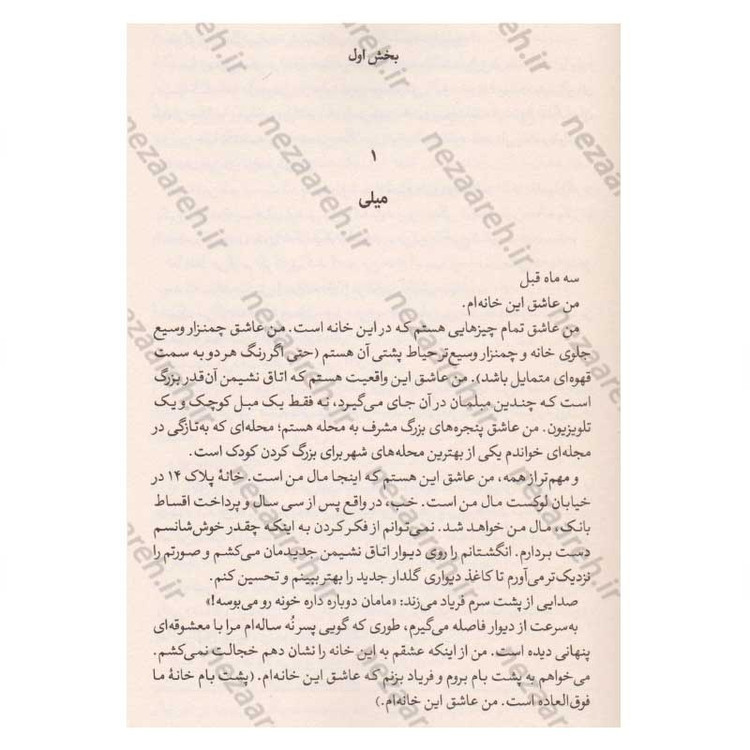 بخش اول
۱
میلی
سه ماه قبل
من عاشق این خانه‌ام.
من عاشق تمام چیزهایی هستم که در این خانه است. من عاشق چمنزار وسیع
جلوی خانه و چمنزار وسیع‌تر حیاط پشتی آن هستم (حتی اگر رنگ هر دو به سمت
قهوه‌ای متمایل باشد). من عاشق این واقعیت هستم که اتاق نشیمن آن‌قدر بزرگ
است که چندین مبلمان در آن جای می‌گیرد، نه فقط یک مبل کوچک و یک
تلویزیون. من عاشق پنجره‌های بزرگ مشرف به محله هستم؛ محله‌ای که به‌تازگی در
مجله‌ای خواندم یکی از بهترین محله‌های شهر برای بزرگ کردن کودک است.
و مهم‌تر از همه، من عاشق این هستم که اینجا مال من است. خانهٔ پلاک ۱۴ در
خیابان لوکست مال من است. خب، در واقع پس از سی سال و پرداخت اقساط
بانک، مال من خواهد شد. نمی‌توانم از فکر کردن به اینکه چقدر خوش‌شانسم
دست بردارم. انگشتانم را روی دیوار اتاق نشیمن جدیدمان می‌کشم و صورتم را
نزدیک‌تر می‌آورم تا کاغذ دیواری گلدار جدید را بهتر ببینم و تحسین کنم.
صدایی از پشت سرم فریاد می‌زند: «مامان دوباره داره خونه رو می‌بوسه!»
به‌سرعت از دیوار فاصله می‌گیرم، طوری که گویی پسر نُه ساله‌ام مرا با معشوقه‌ای
پنهانی دیده است. من از اینکه عشقم به این خانه را نشان دهم خجالت نمی‌کشم.
می‌خواهم به پشت بام بروم و فریاد بزنم که عاشق این خانه‌ام. (پشت بام خانهٔ ما
فوق‌العاده است. من عاشق این خانه‌ام.)
nezaareh.ir